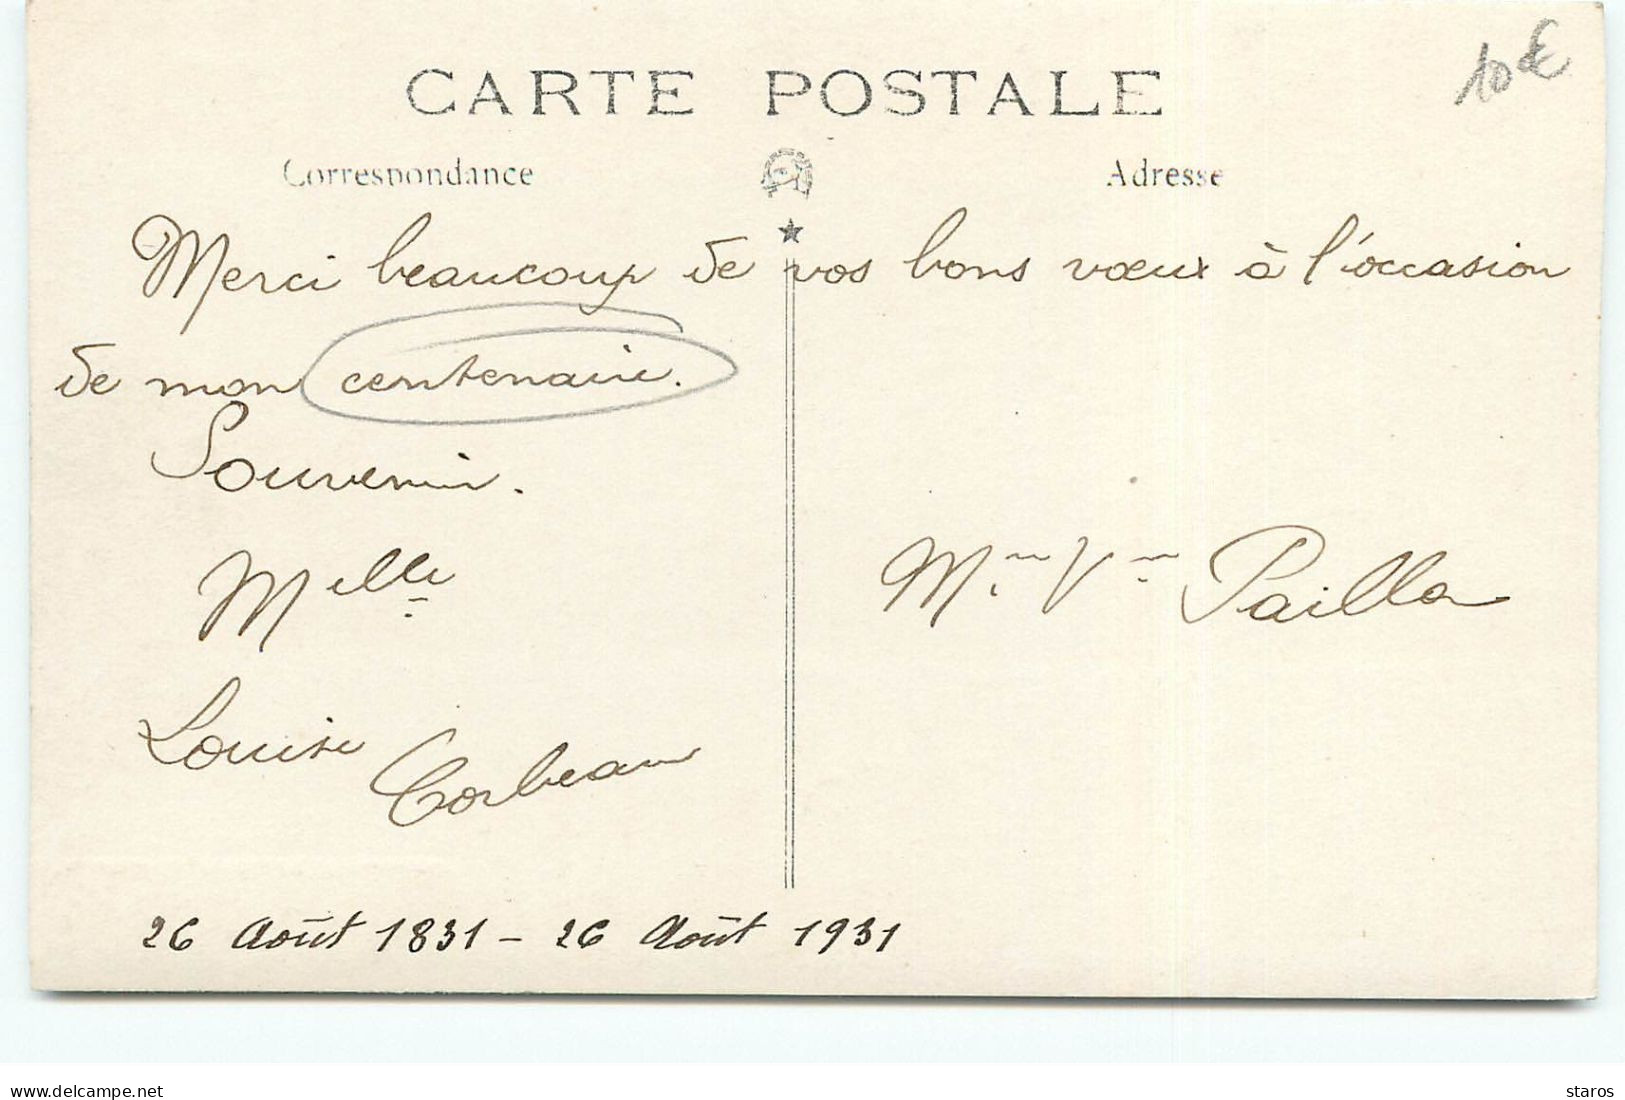 CARTE POSTALE
10€
Correspondance
Adresse
Merci beaucoup de vos bons vœux à l'occasion
de mon centenaire.
Souvenir.
Melle
Louise Corbeau
Mme Vve Pailla
26 Août 1831 - 26 Août 1931
www.delcampe.net
staros